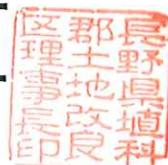 長野県埴科
郡土地改良
区理事長印